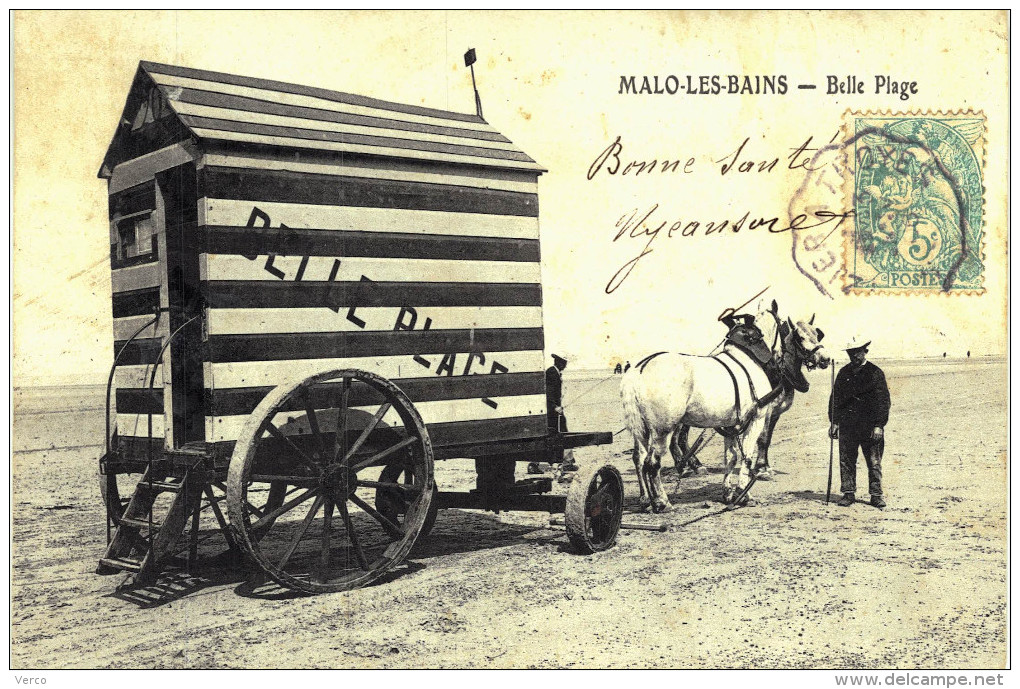 MALO-LES-BAINS — Belle Plage
Bonne Santé
5c
POSTES
BELLE PLAGE
Verco
www.delcampe.net